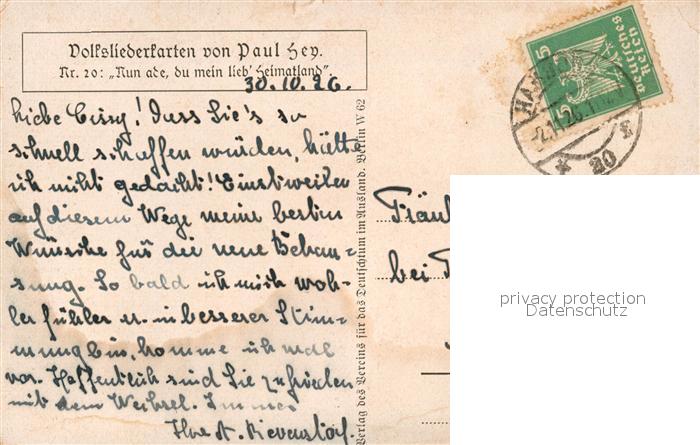 Volksliederkarten von Paul Hey.
Nr. 20: „Nun ade, du mein lieb' Heimatland".
30.10.26.
Liebe Cissy! Dass Sie's so
schnell schaffen würden, hätte
ich nicht gedacht! Einstweilen
auf diesem Wege meine besten
Wünsche für die neue Behau-
sung. So bald ich mich woh-
ler fühle u. in besserer Stim-
mung bin, komme ich mal
vor. Hoffentlich sind Sie zufrieden
mit dem Wechsel. Immer
Ihre A.
Verlag des Vereins für das Deutschtum im Ausland. Berlin W 62
Deutsches
Reich
5 5
2.11.26
* ao
Fräul
bei
privacy protection
Datenschutz